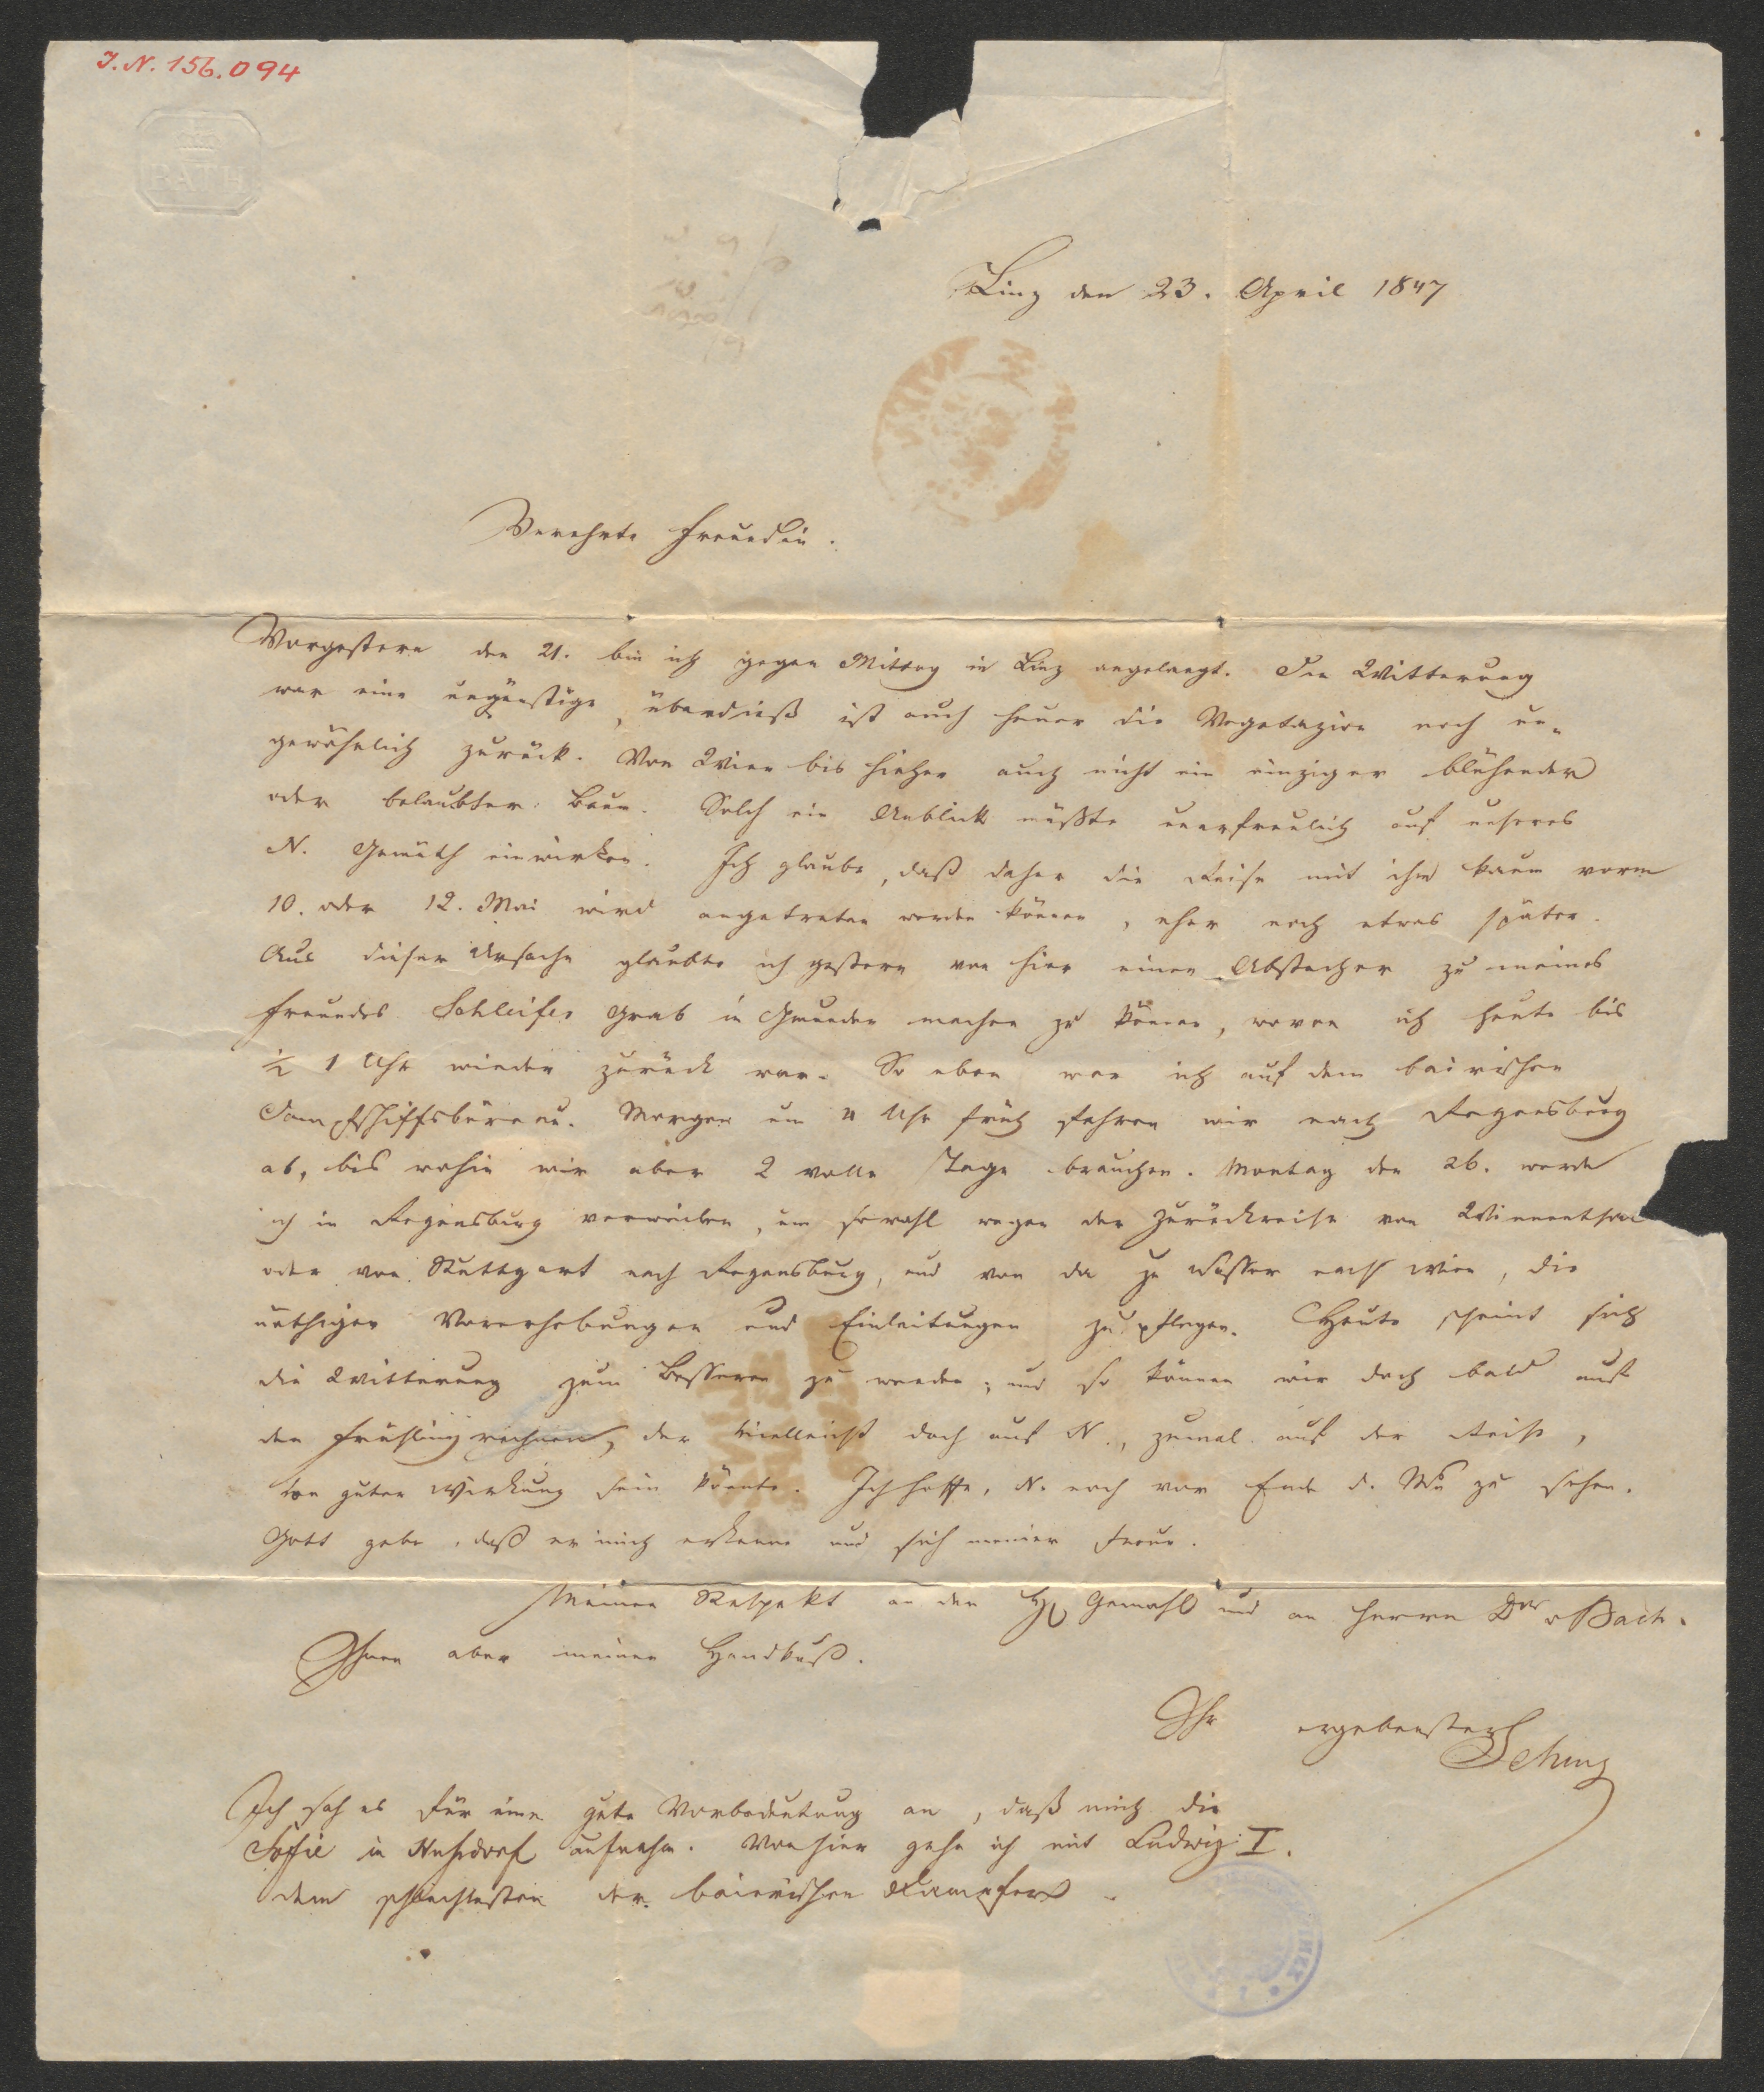 I.N. 156.094
BATH
Linz den 23. April 1847
Verehrte Freundin.
Vorgestern den 21. bin ich gegen Mittag in Linz angelangt. Die Witterung
war eine ungünstige, überdieß ist auch heuer die Vegetazion noch un-
gewöhnlich zurück. Von Wien bis hieher auch nicht ein einziger blühender
oder belaubter Baum. Solch ein Anblick müßte unerfreulich auf unseres
N. Gemüth einwirken. Ich glaube, daß daher die Reise mit ihm kaum vorm
10. oder 12. Mai wird angetreten werden können, eher noch etwas später.
Aus dieser Ursache glaubte ich gestern von hier einen Abstecher zu meines
Freundes Schleifer Grab in Gmunden machen zu können, wovon ich heute bis
½ 1 Uhr wieder zurück war. So eben war ich auf dem bairischen
Dampfschiffsbüreau. Morgen um 4 Uhr früh fahren wir nach Regensburg
ab, bis wohin wir aber 2 volle Tage brauchen. Montag den 26. werde
ich in Regensburg verweilen, um sowohl wegen der Zurückreise von Winnenthal
oder von Stuttgart nach Regensburg, und von da zu Wasser nach Wien, die
nöthigen Vorerhebungen und Einleitungen zu pflegen. Heute scheint sich
die Witterung zum Besseren zu wenden; und so können wir doch bald auf
den Frühling rechnen, der vielleicht doch auf N., zumal auf der Reise,
von guter Wirkung sein könnte. Ich hoffe, N. noch vor Ende d. Mts zu sehen.
Gott gebe, daß er mich erkenne und sich meiner freue.
Meinen Respekt an den H Gemahl und an Herrn Dor Bach.
Ihnen aber meinen Handkuß.
Ihr ergebenster
Schurz
Ich sah es für eine gute Vorbedeutung an, daß mich die
Sofie in Nußdorf aufnahm. Von hier gehe ich mit Ludwig I.
dem schlechtesten der bairischen Dampfer.